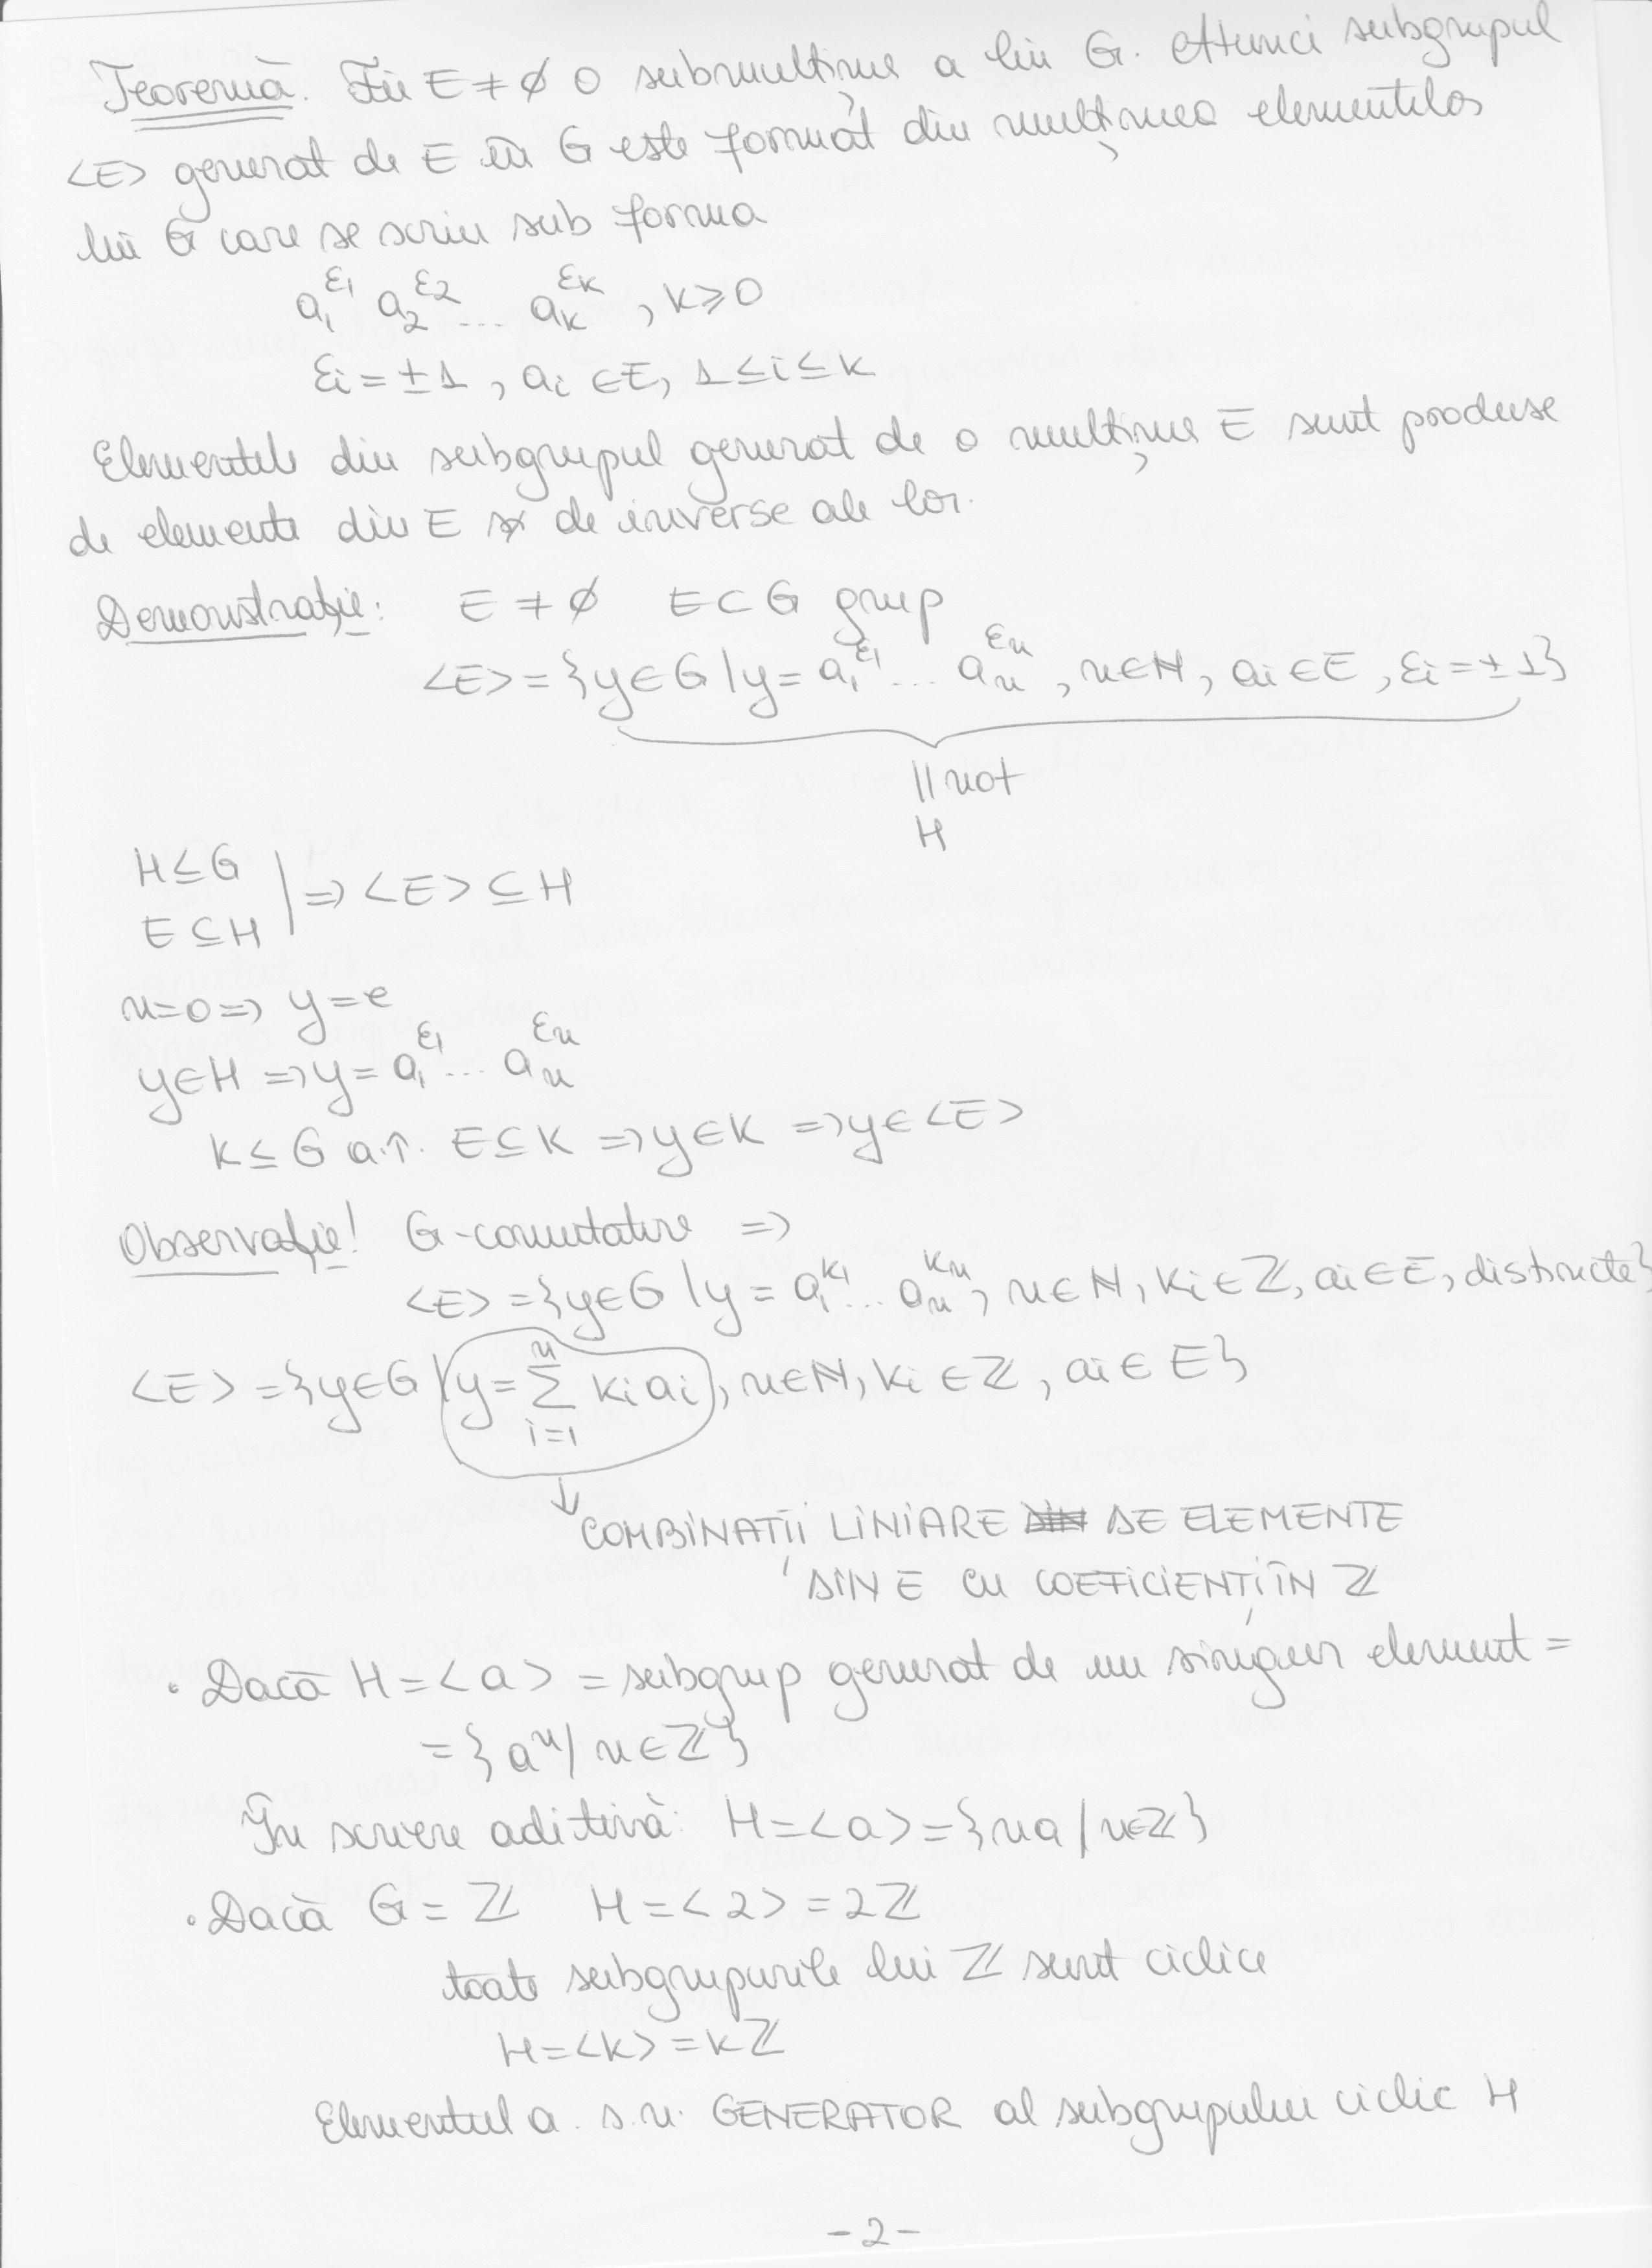 Teoremă. Fie E ≠ ∅ o submulțime a lui G. Atunci subgrupul
<E> generat de E în G este format din mulțimea elementelor
lui G care se scriu sub forma
a₁^ε₁ a₂^ε₂ ... aₖ^εₖ , k ≥ 0
εᵢ = ±1 , aᵢ ∈ E, 1 ≤ i ≤ k
Elementele din subgrupul generat de o mulțime E sunt produse
de elemente din E și de inverse ale lor.
Demonstrație: E ≠ ∅ E ⊂ G grup
<E> = {y ∈ G | y = a₁^ε₁ ... aₙ^εₙ , n ∈ ℕ, aᵢ ∈ E , εᵢ = ±1}
|| not
H
H ≤ G
E ⊆ H | ⇒ <E> ⊆ H
n = 0 ⇒ y = e
y ∈ H ⇒ y = a₁^ε₁ ... aₙ^εₙ
K ≤ G a.î. E ⊆ K ⇒ y ∈ K ⇒ y ∈ <E>
Observație! G - comutativ ⇒
<E> = {y ∈ G | y = a₁^k₁ ... aₙ^kₙ, n ∈ ℕ, kᵢ ∈ ℤ, aᵢ ∈ E, distincte}
<E> = {y ∈ G | y = ∑_{i=1}^{n} kᵢaᵢ , n ∈ ℕ, kᵢ ∈ ℤ , aᵢ ∈ E}
↓ COMBINAȚII LINIARE DE ELEMENTE
DIN E CU COEFICIENȚI ÎN ℤ
• Dacă H = <a> = subgrup generat de un singur element =
= {aⁿ / n ∈ ℤ}
În scriere aditivă: H = <a> = {na / n ∈ ℤ}
• Dacă G = ℤ H = <2> = 2ℤ
toate subgrupurile lui ℤ sunt ciclice
H = <k> = kℤ
Elementul a s.n. GENERATOR al subgrupului ciclic H
-2-